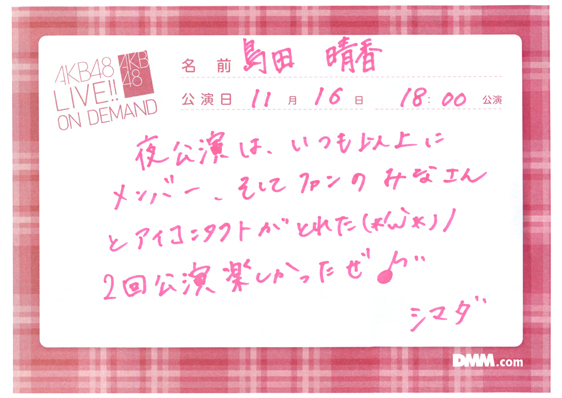 AKB48
LIVE!!
ON DEMAND
AKB
48
名 前 島田 晴香
公演日 11 月 16 日 18:00 公演
夜公演は、いつも以上に
メンバー、そしてファンのみなさん
とアイコンタクトがとれた(*'ω'*)ノ
2回公演楽しかったぜ♪"
シマダ
DMM.com